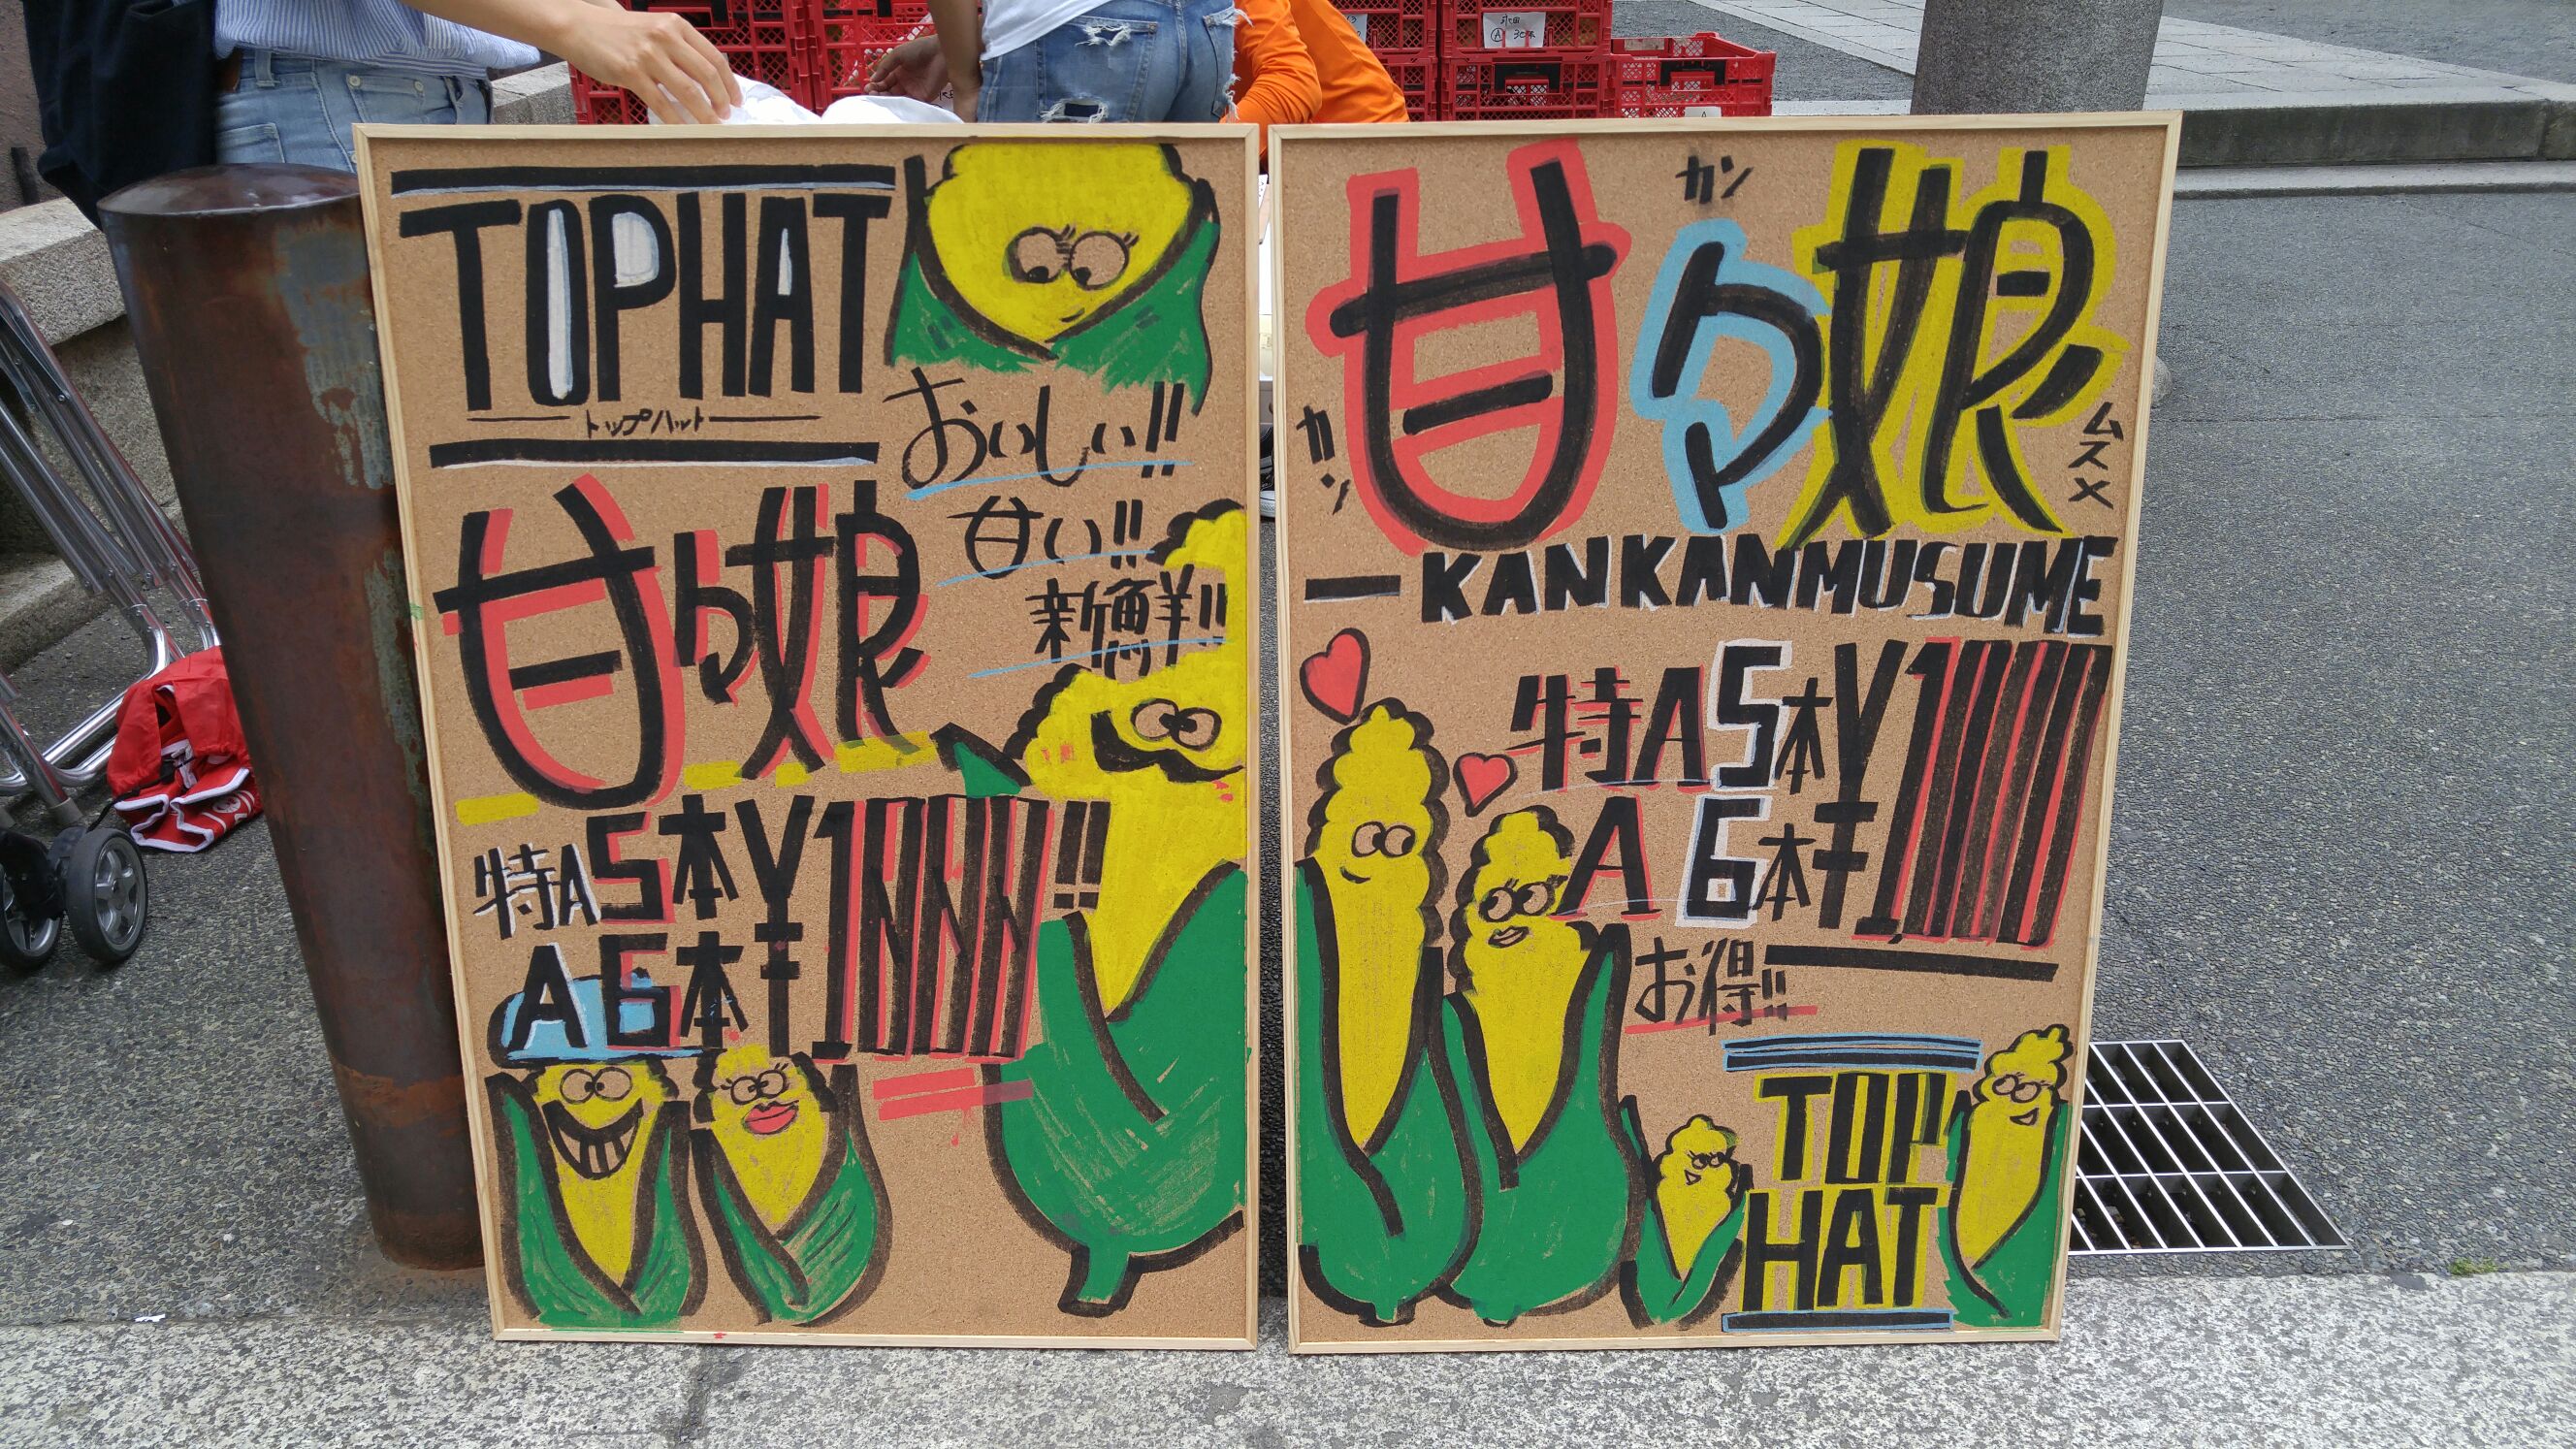 TOPHAT
トップハット
おいしい!!
甘い!!
新鮮!!
甘々娘
特A5本
A6本
¥1,000!!
甘々娘
カン
カン
ムスメ
KANKANMUSUME
特A5本
A6本
¥1,000
お得!!
TOP
HAT